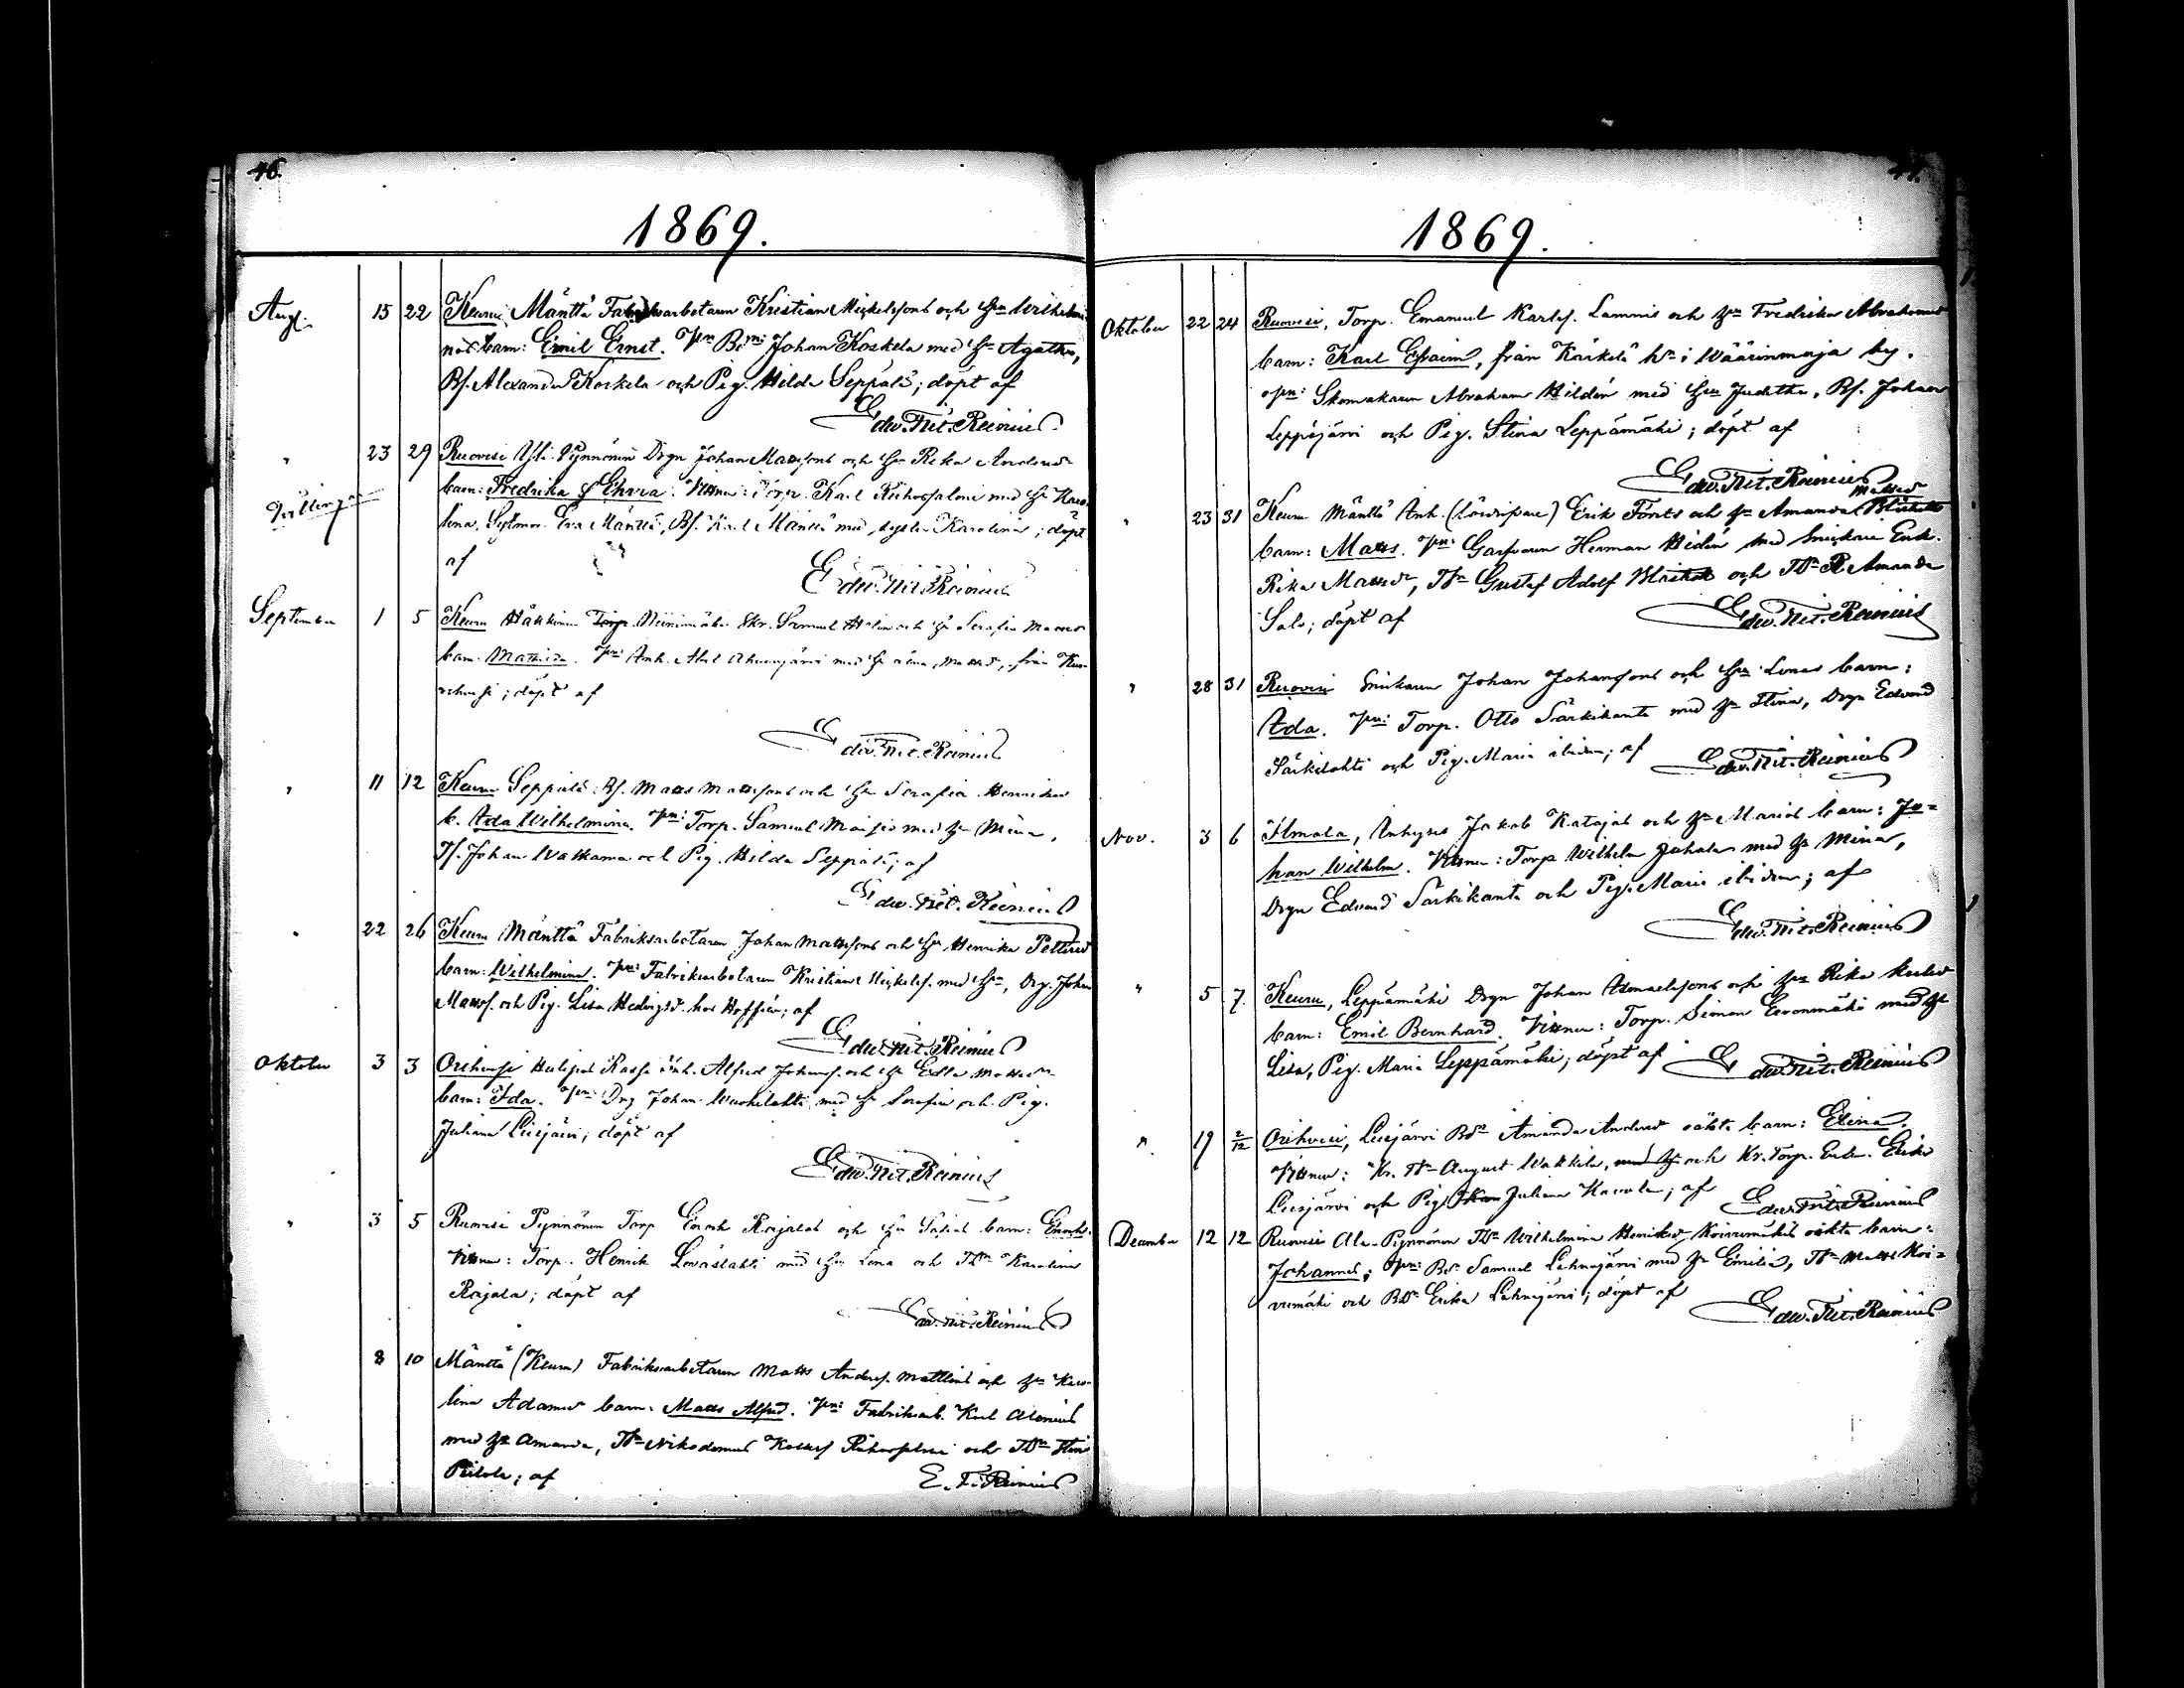 46.
1869.
Aug. 15 22 Keuru, Mänttä Fabriksarbetaren Kristian Michelssons och Hu Wilhelmi-
nas barn: Emil Ernst. Johan Koskela med Hu Agatha,
Bs. Alexander Koskela och Pig. Hilda Seppälä; döpt af
Edw. Fit. Reinius
" 23 29 Ruovesi Yli-Pynnönen Drgn Johan Matssons och Hu Rika Andersdr
Tvillingar barn: Fredrika & Edvra. Vittnen: Torp. Karl Riihosalmi med Hu Karo-
lina, Eva Mänttä, Bs. Karl Mänttä med syster Karolina; döpt
af
Edw. Fit. Reinius
September 1 5 Keuru Häkkinen Torp. Niinimäki Skr. Samuel och Hu Serafia
barn: Mathilda. Inh. Abel Ahvenjärvi med Hu från
; döpt af
Edw. Fit. Reinius
" 11 12 Keuru Seppälä Bs. Matts Mattssons och Hu Serafia Henriksdr
b. Ada Wilhelmina. Torp. Samuel med Hu Mina,
Johan Watkama och Pig. Hilda Seppälä; af
Edw. Fit. Reinius
" 22 26 Keuru Mänttä Fabriksarbetaren Johan Mattssons och Hu Henrika Pettersd
barn: Wilhelmina. Fabriksarbetaren Kristian Michelss. med Hu, Drg. Johan
Matss. och Pig. Lisa Hedvigsd. hos Hoffrén; af
Edw. Fit. Reinius
Oktober 3 3 Orihvesi Inh. Alfred Johanss. och Hu Edla Mattsdr
barn: Ida. Drg Johan med Hu Serafia och Pig.
Juliana Liesjärvi; döpt af
Edw. Fit. Reinius
" 3 5 Ruovesi Pynnönen Torp Enoch Rajalas och Hu Sofias barn: Enoch.
Vittnen: Torp. Henrik Loväslahti med Hu Lena och Karolina
Rajala; döpt af
Edw. Fit. Reinius
8 10 Mänttä (Keuru) Fabriksarbetaren Matts Anderss. Mattlins och Hu Karo-
lina Adamsdr barn: Matts Alfred. Fabriksarb. Karl Alenius
med Hu Amanda, Nikodemus och Stina
; af E. F. Reinius
47.
1869.
Oktober 22 24 Ruovesi, Torp. Emanuel Karlss. Lamnis och Hu Fredrika Abrahamsd
barn: Karl Efraim, från Kärkelä i Wäärinmaja by.
Skomakaren Abraham Hildén med Hu Juditha, Bs. Johan
Leppäjärvi och Pig. Stina Leppämäki; döpt af
Edw. Fit. Reinius
Mattsd
" 23 31 Keuru Mänttä Inh. Erik Fonts och Hu Amanda
barn: Matts. Garfvaren Herman Hidén med Snickare Enk.
Rika Mattsdr, Gustaf Adolf och Amanda
Salo; döpt af Edw. Fit. Reinius
" 28 31 Ruovesi Snickaren Johan Johanssons och Hu Lenas barn:
Ada. Torp. Otto Särkikanta med Hu Stina, Drgn Edvard
Särkilahti och Pig. Maria ibidem; af Edw. Fit. Reinius
Nov. 3 6 Ilmala, Inhyses Jakob Katajas och Hu Marias barn: Jo-
han Wilhelm. Vittnen: Torp Wilhelm med Hu Mina,
Drgn Edvard Särkikanta och Pig. Maria ibidem; af
Edw. Fit. Reinius
" 5 7. Keuru, Leppämäki Drgn Johan Ismaelssons och Hu Rika Karlsd
barn: Emil Bernhard. Vittnen: Torp. Simon Eeronmäki med Hu
Lisa, Pig. Maria Leppämäki; döpt af Edw. Fit. Reinius
" 19 2/12 Orihvesi, Liesjärvi Amanda Andersd oäkta barn: Elina.
Vittnen: August Wakkila, med Hu och Kr. Torp. Enk. Erika
Liesjärvi och Pig Juliana ; af Edw. Fit. Reinius
December 12 12 Ruovesi Ala-Pynnönen Wilhelmina Henriksd Koivumäkis oäkta barn:
Johannes; Samuel Lehmijärvi med Hu Emilia, Matts Koi-
vumäki och Erika Lehmijärvi; döpt af
Edw. Fit. Reinius